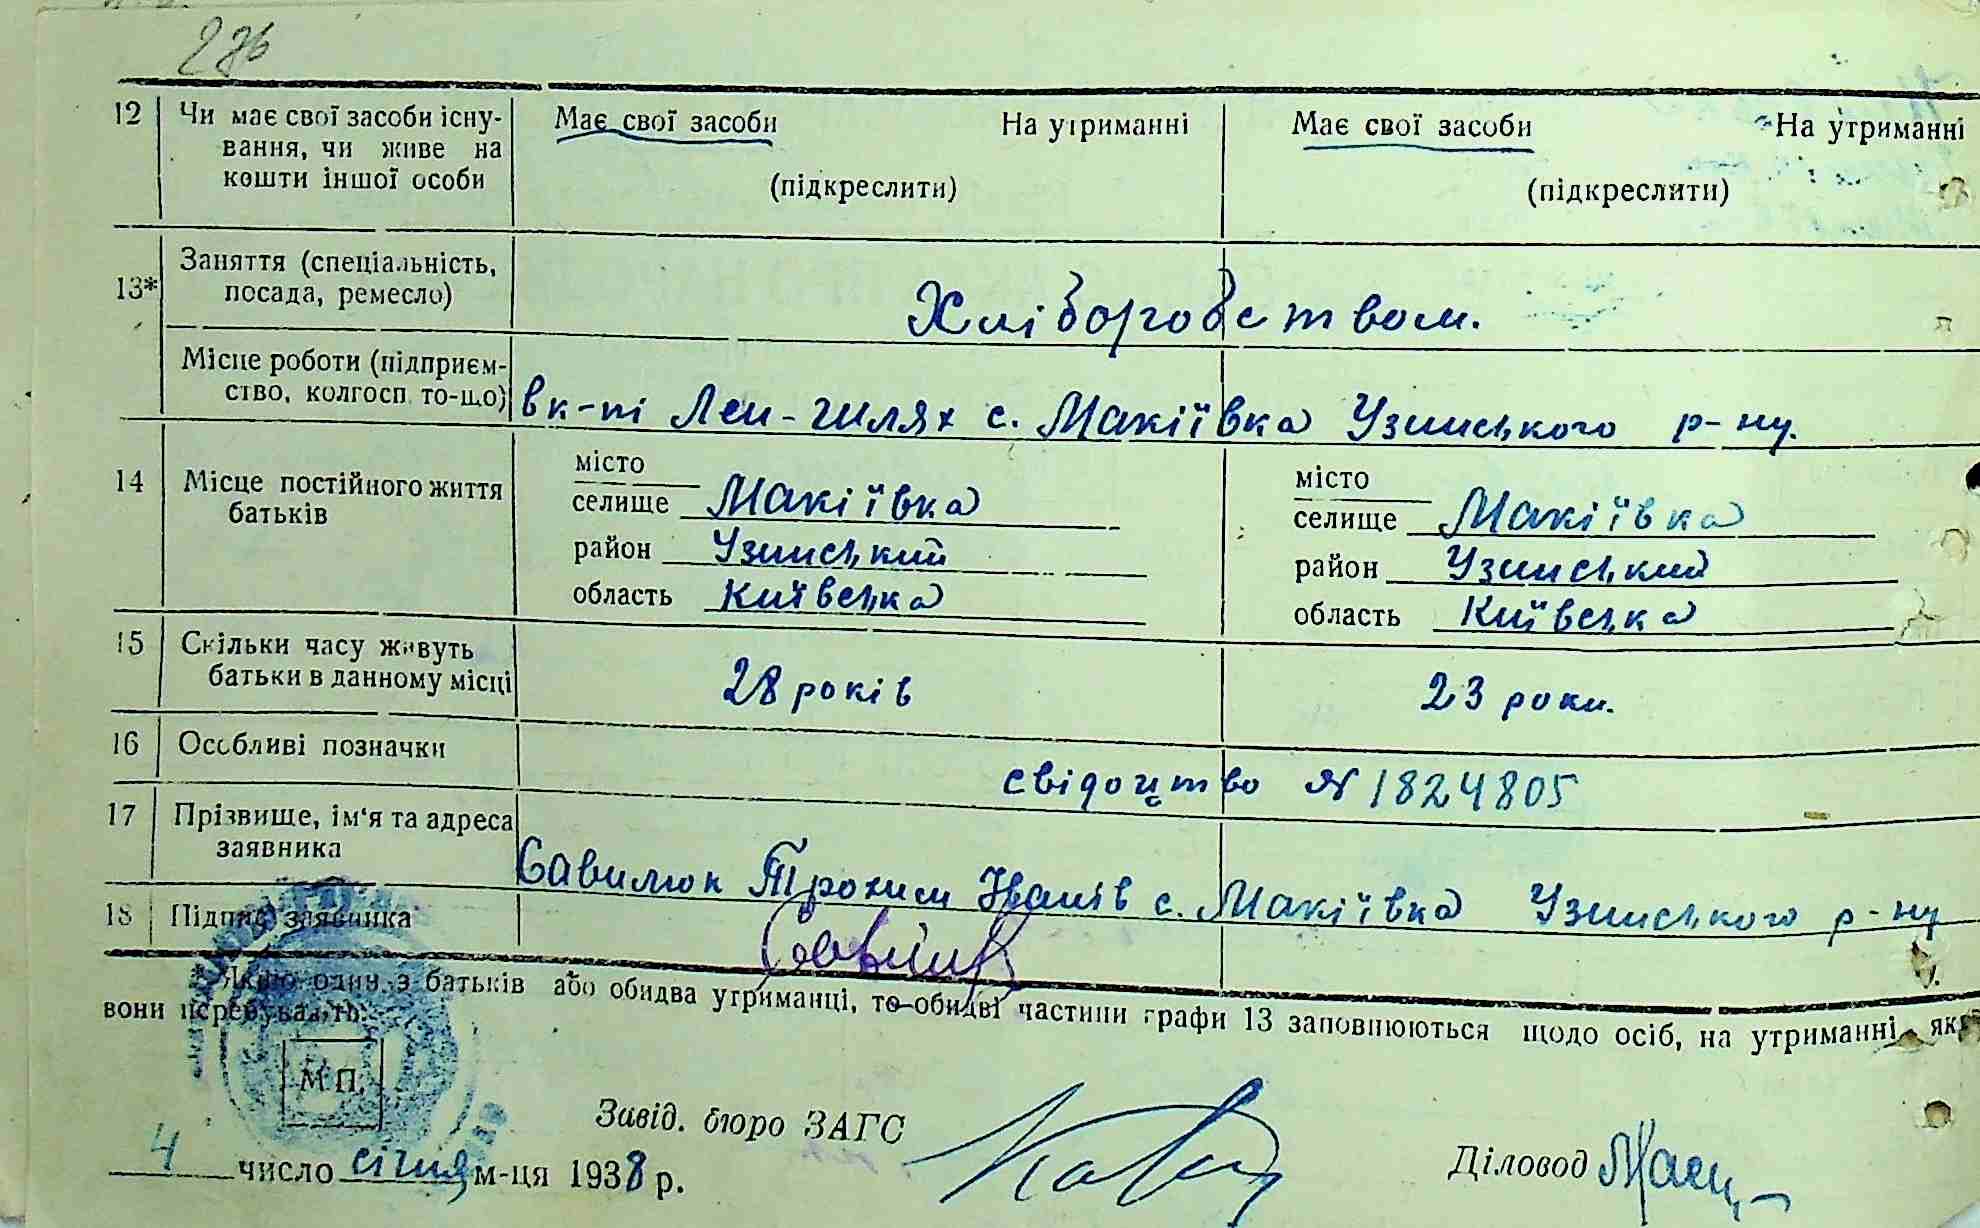 12 Чи має свої засоби існу-
вання, чи живе на
кошти іншої особи
Має свої засоби На утриманні
(підкреслити)
Має свої засоби На утриманні
(підкреслити)
13* Заняття (спеціальність,
посада, ремесло)
Хліборобством.
Місце роботи (підприєм-
ство, колгосп то-що)
с. Макіївка Узинського р-ну.
14 Місце постійного життя
батьків
місто
селище Макіївка
район Узинський
область Київська
місто
селище Макіївка
район Узинський
область Київська
15 Скільки часу живуть
батьки в данному місці
28 років
23 роки.
16 Особливі позначки
свідоцтво № 1824805
17 Прізвище, ім'я та адреса
заявника
Савилюк Трохим Іванів с. Макіївка Узинського р-ну
18 Підпис заявника
* Якщо один з батьків або обидва утриманці, то обидві частини графи 13 заповнюються щодо осіб, на утриманні яких
вони перебувають.
М.П.
Завід. бюро ЗАГС
4 число січня м-ця 1938 р.
Діловод